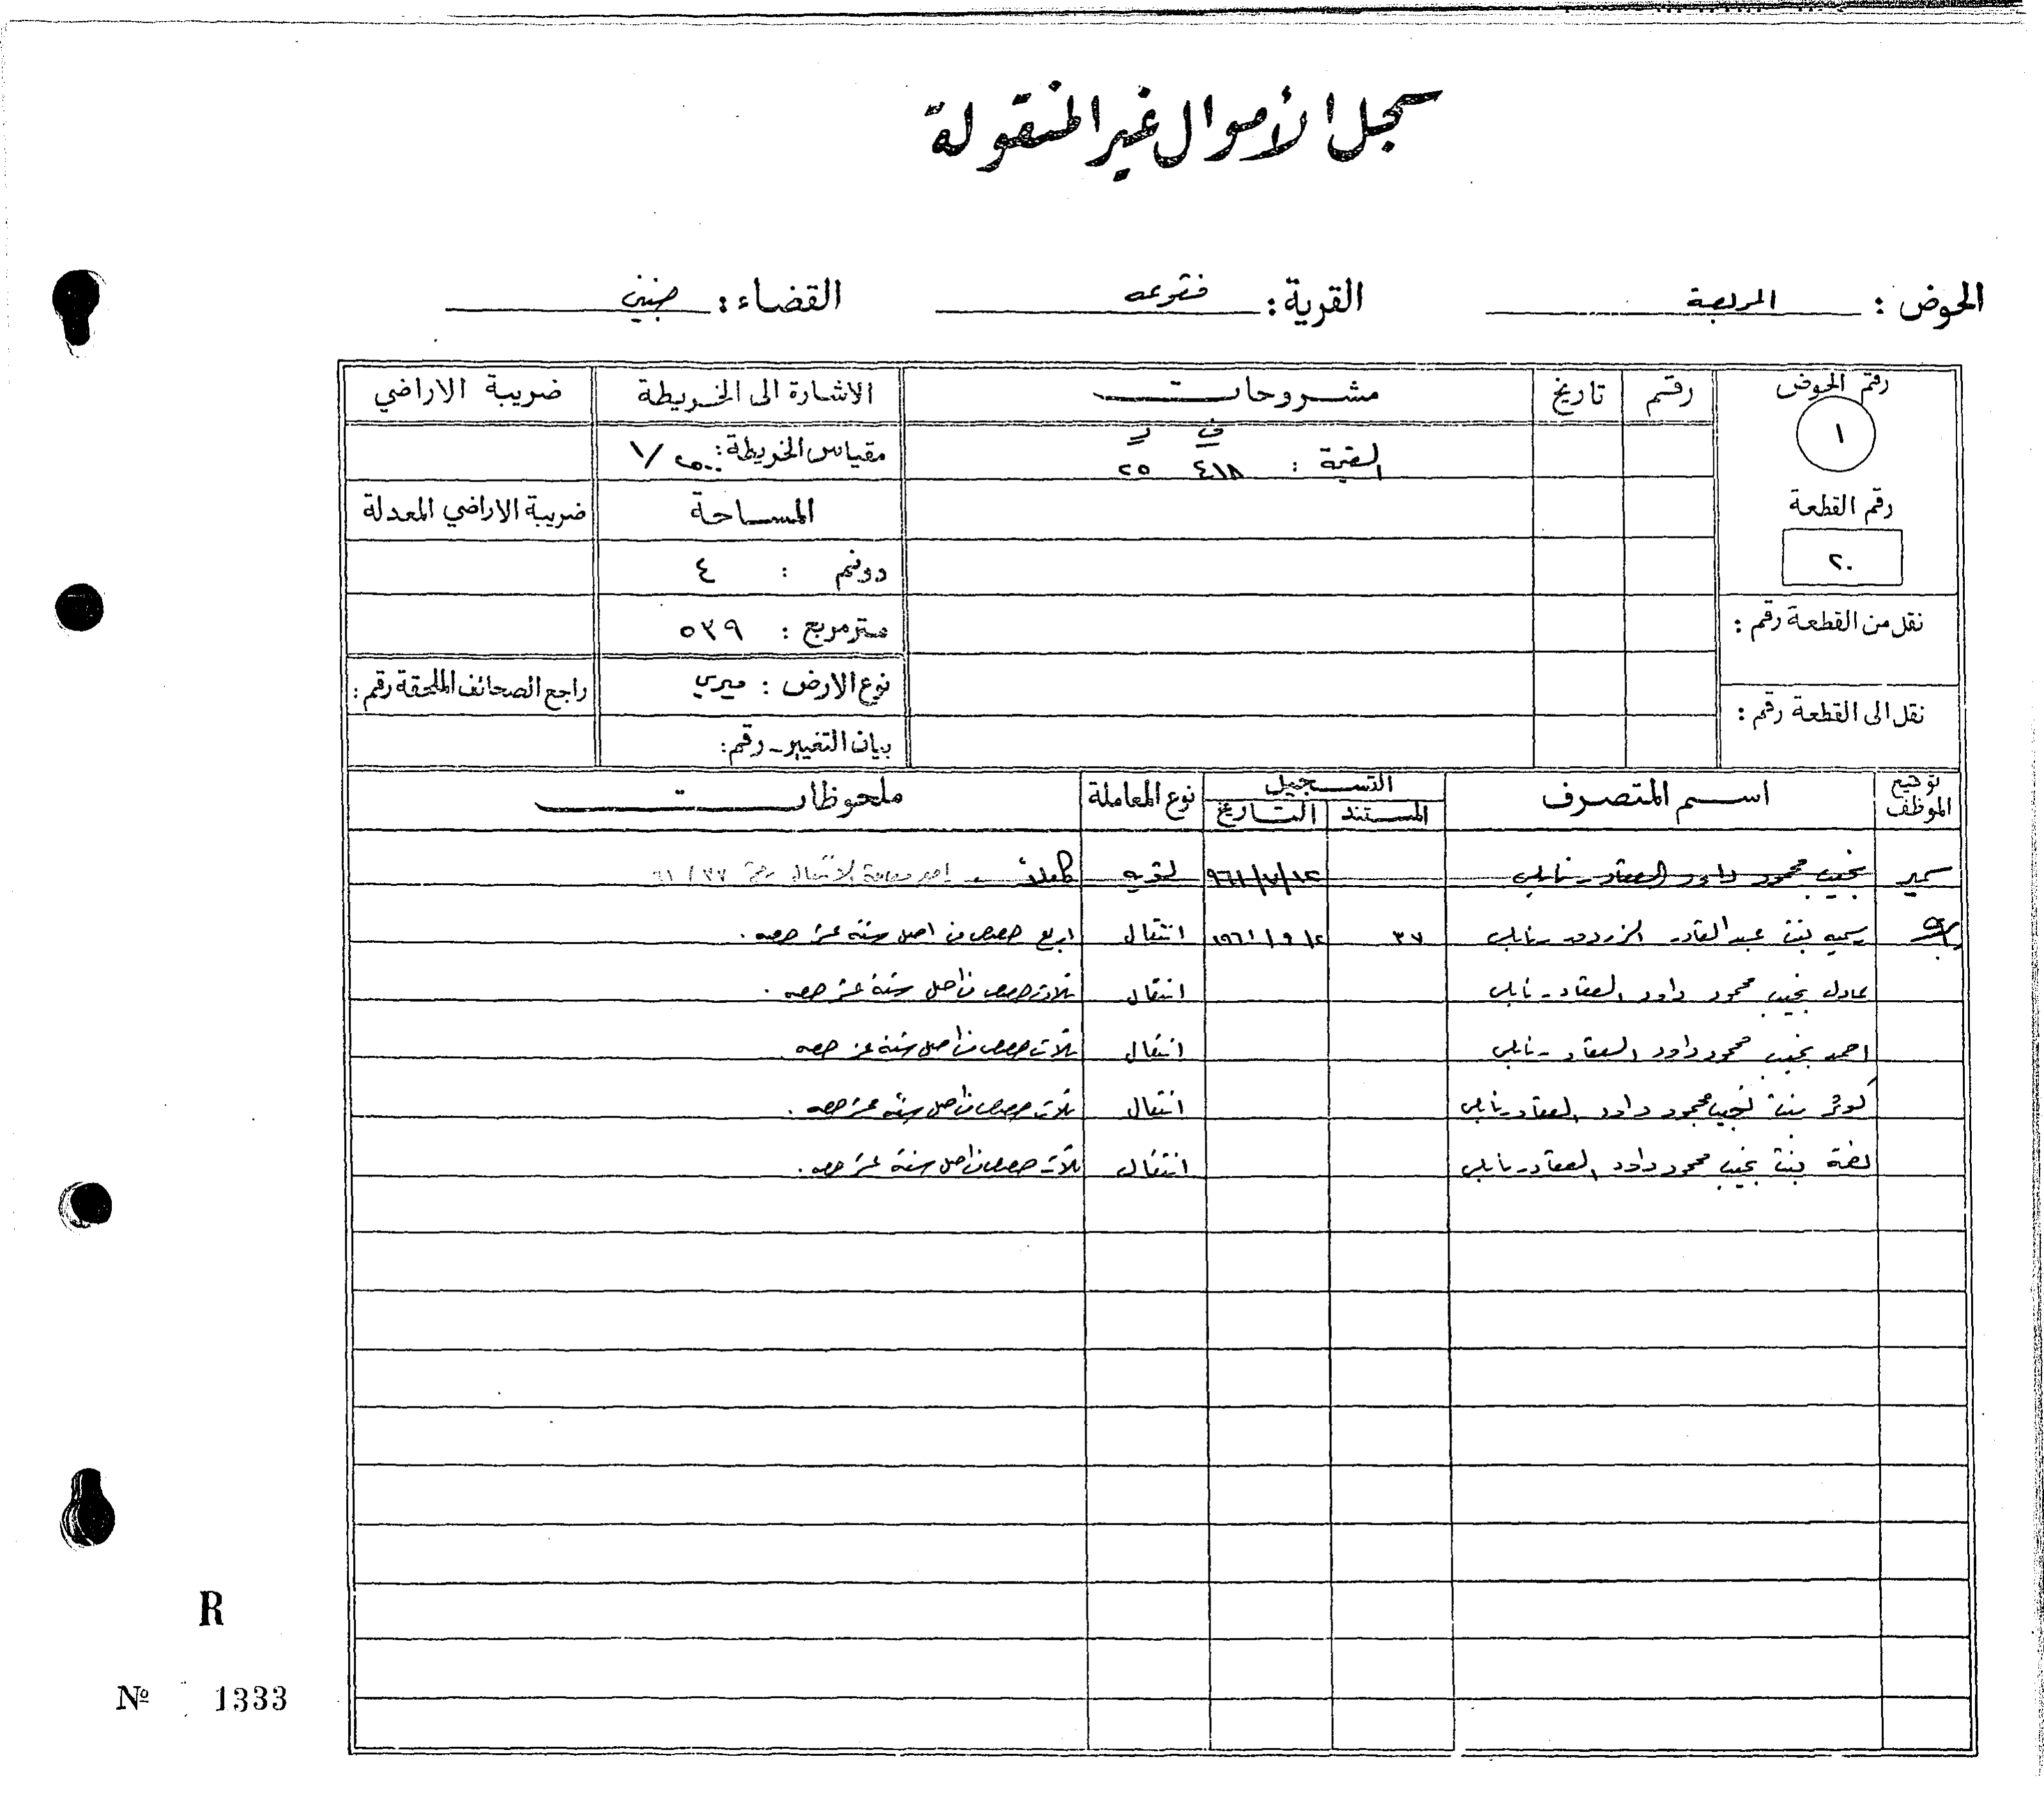 سجل الأموال غير المنقولة
الحوض : المربعة القرية : فقوعه القضاء : جنين
رقم الحوض رقم تاريخ مشروحات الاشارة الى الخريطة ضريبة الاراضي
١ القيمة : ٤١٨ ٢٥ مقياس الخريطة : ١/٢٥٠٠
رقم القطعة المساحة ضريبة الاراضي المعدلة
٢٠ دونم : ٤
نقل من القطعة رقم : متر مربع : ٥٣٩
نوع الارض : ميري راجع الصحائف الملحقة رقم :
نقل الى القطعة رقم :
بيان التغيير - رقم :
توقيع الموظف اسم المتصرف التسجيل نوع المعاملة ملحوظات
المستند التاريخ
سمير نجيب محمود داود العقاد - نابلس ٩٦١/٧/١٢ تسويه كاملا
بنت عبد القادر - نابلس ٣٧ ١٩٦١/٩/٢ انتقال اربع حصص من اصل ستة عشر حصه .
عادل نجيب محمود داود العقاد - نابلس انتقال ثلاث حصص من اصل ستة عشر حصه .
احمد نجيب محمود داود العقاد - نابلس انتقال ثلاث حصص من اصل ستة عشر حصه .
كوثر بنت نجيب محمود داود العقاد - نابلس انتقال ثلاث حصص من اصل ستة عشر حصه .
بنت نجيب محمود داود العقاد - نابلس انتقال ثلاث حصص من اصل ستة عشر حصه .
R
№ 1333